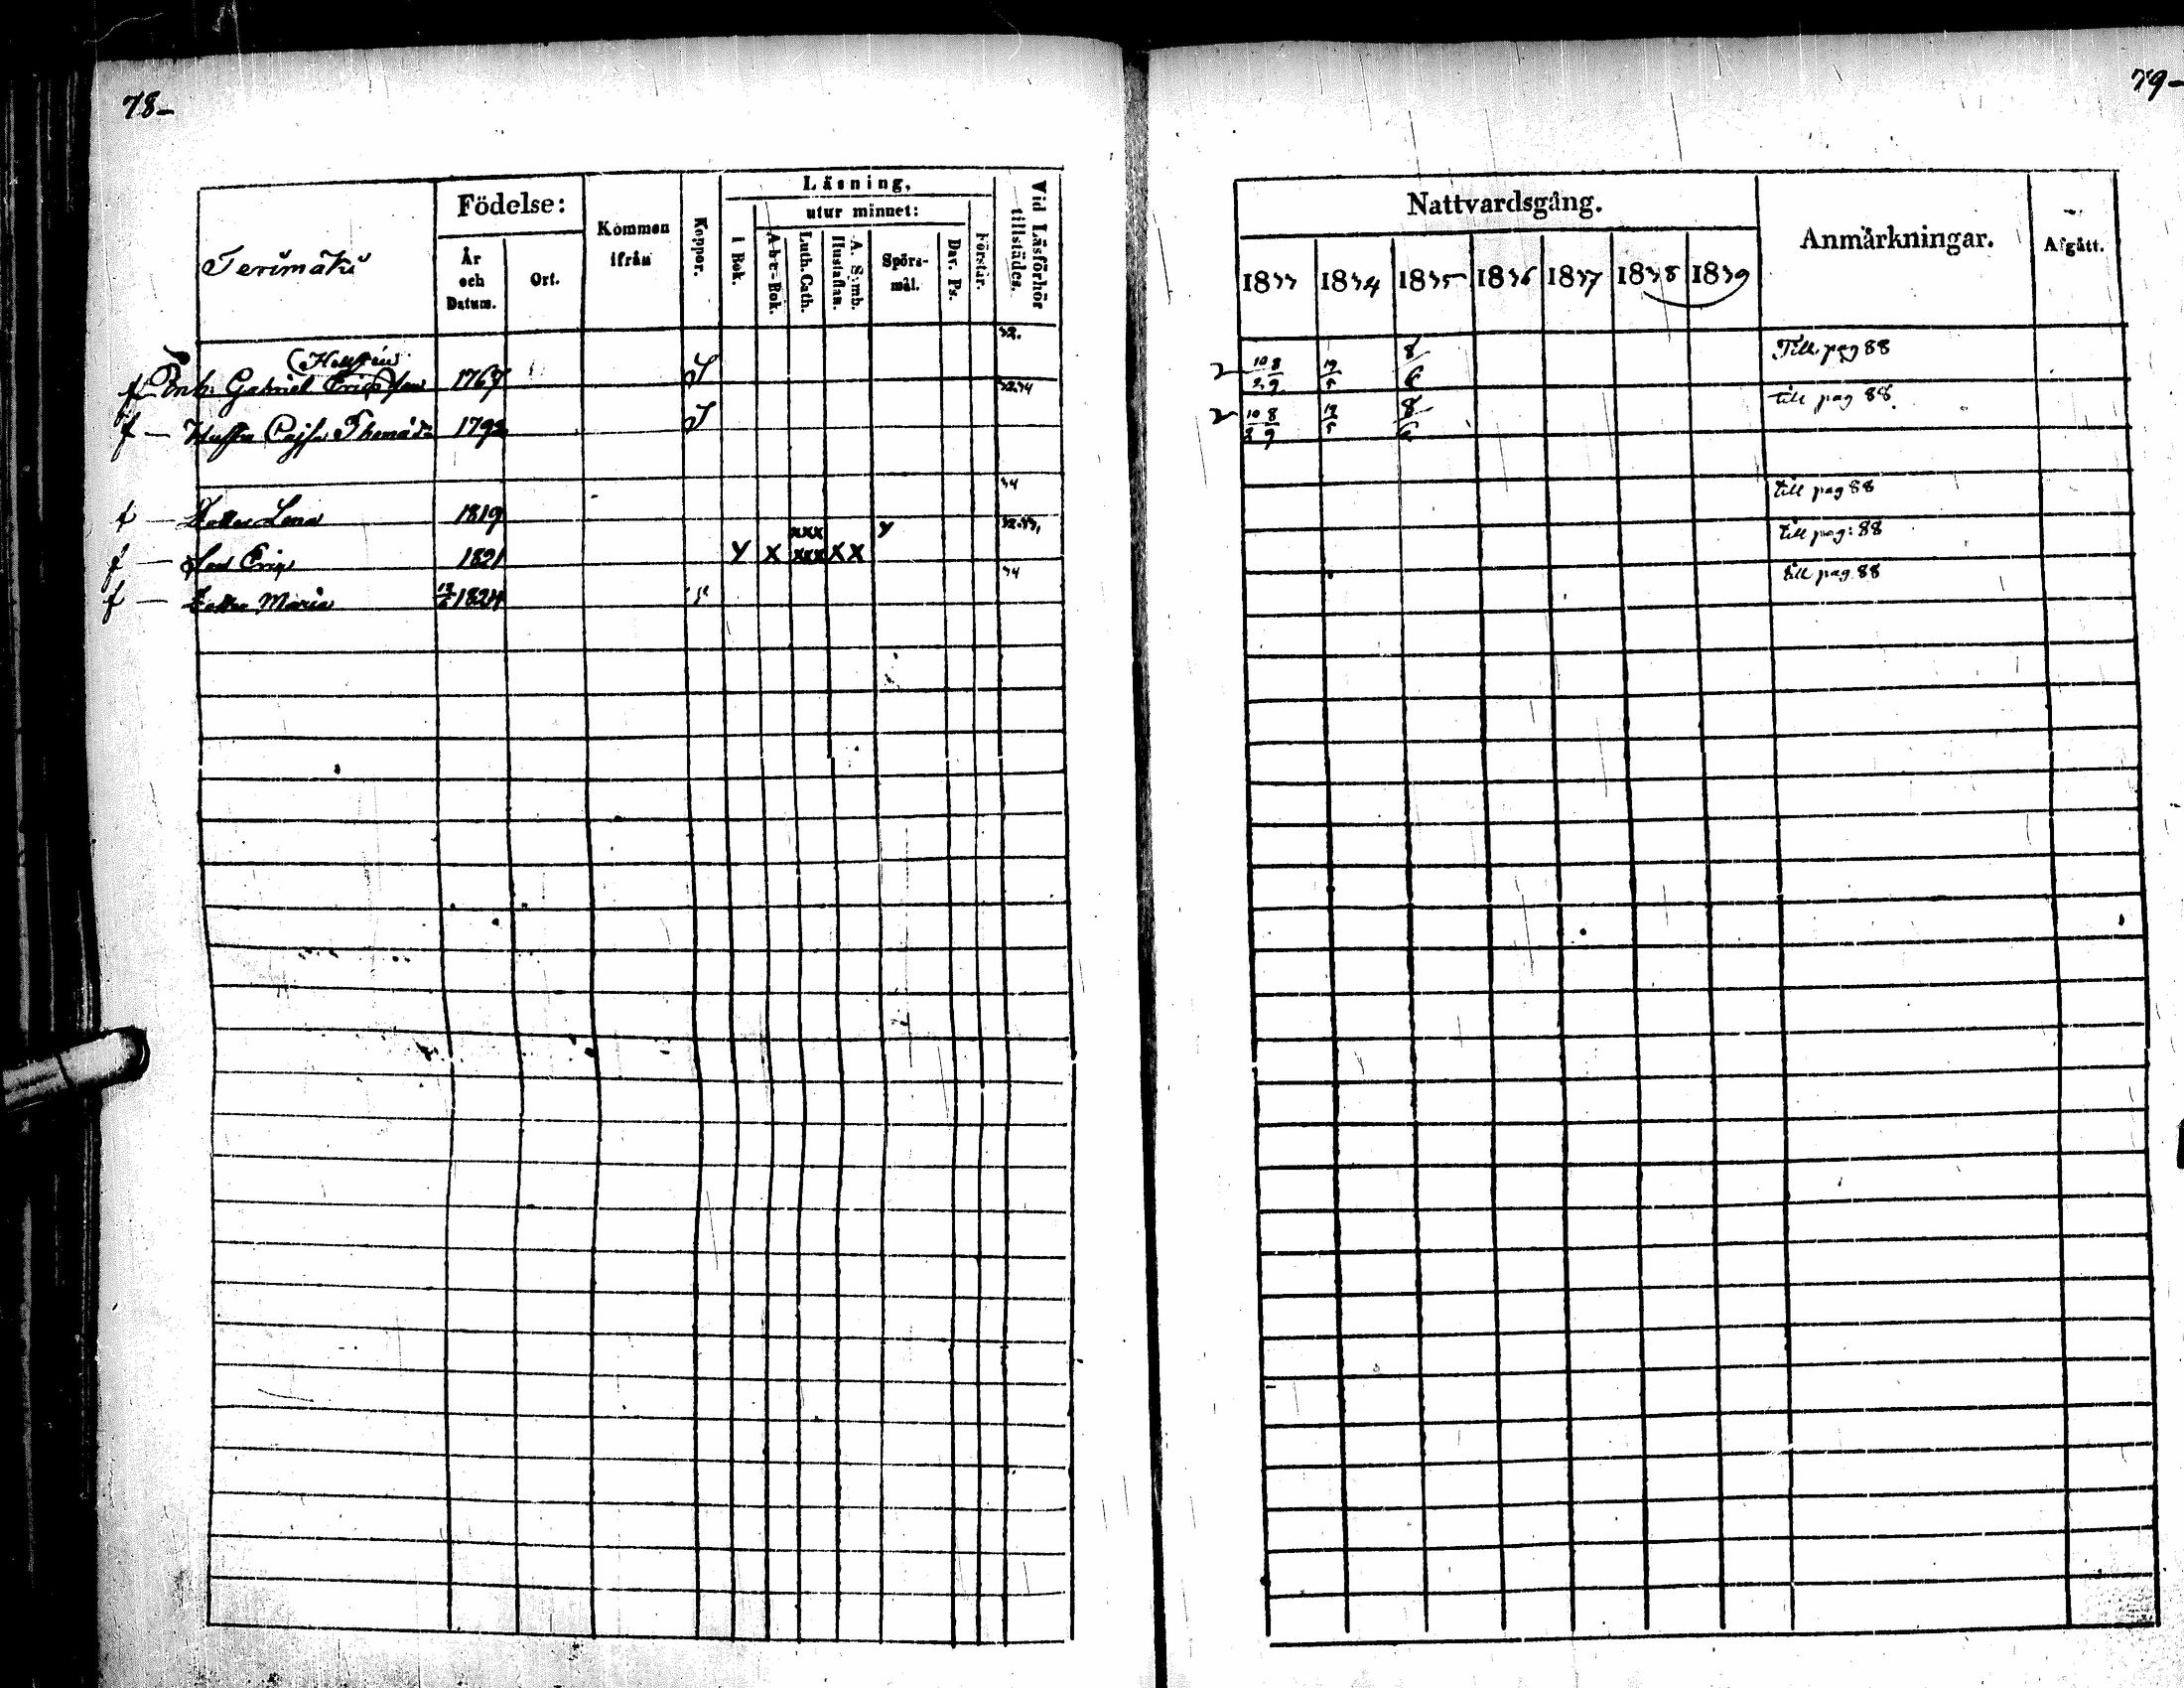 78-
79-
Terimäki
Födelse:
År och Datum.
Ort.
Kommen ifrån
Koppor.
Läsning,
utur minnet:
I Bok.
A-b-c-Bok.
Luth. Cath.
Hustaflan.
A. Symb.
Spörs-mål.
Dav. Ps.
Förstår.
Vid Läsförhör tillstädes.
Nattvardsgång.
1833 1834 1835 1836 1837 1838 1839
Anmärkningar.
Afgått.
Gabriel Ericsson 1767 32. 10/2 8/9 19/5 8/6 Till pag 88
f — Hustru Cajsa Thomäd: 1792 32.34 10/2 8/9 19/5 8/6 till pag 88
f — Dotter Lena 1819 34 till pag 88
xxx y
f — Son Eric 1821 Y X xxx X X till pag: 88
f — Dotter Maria 1824 34 till pag. 88